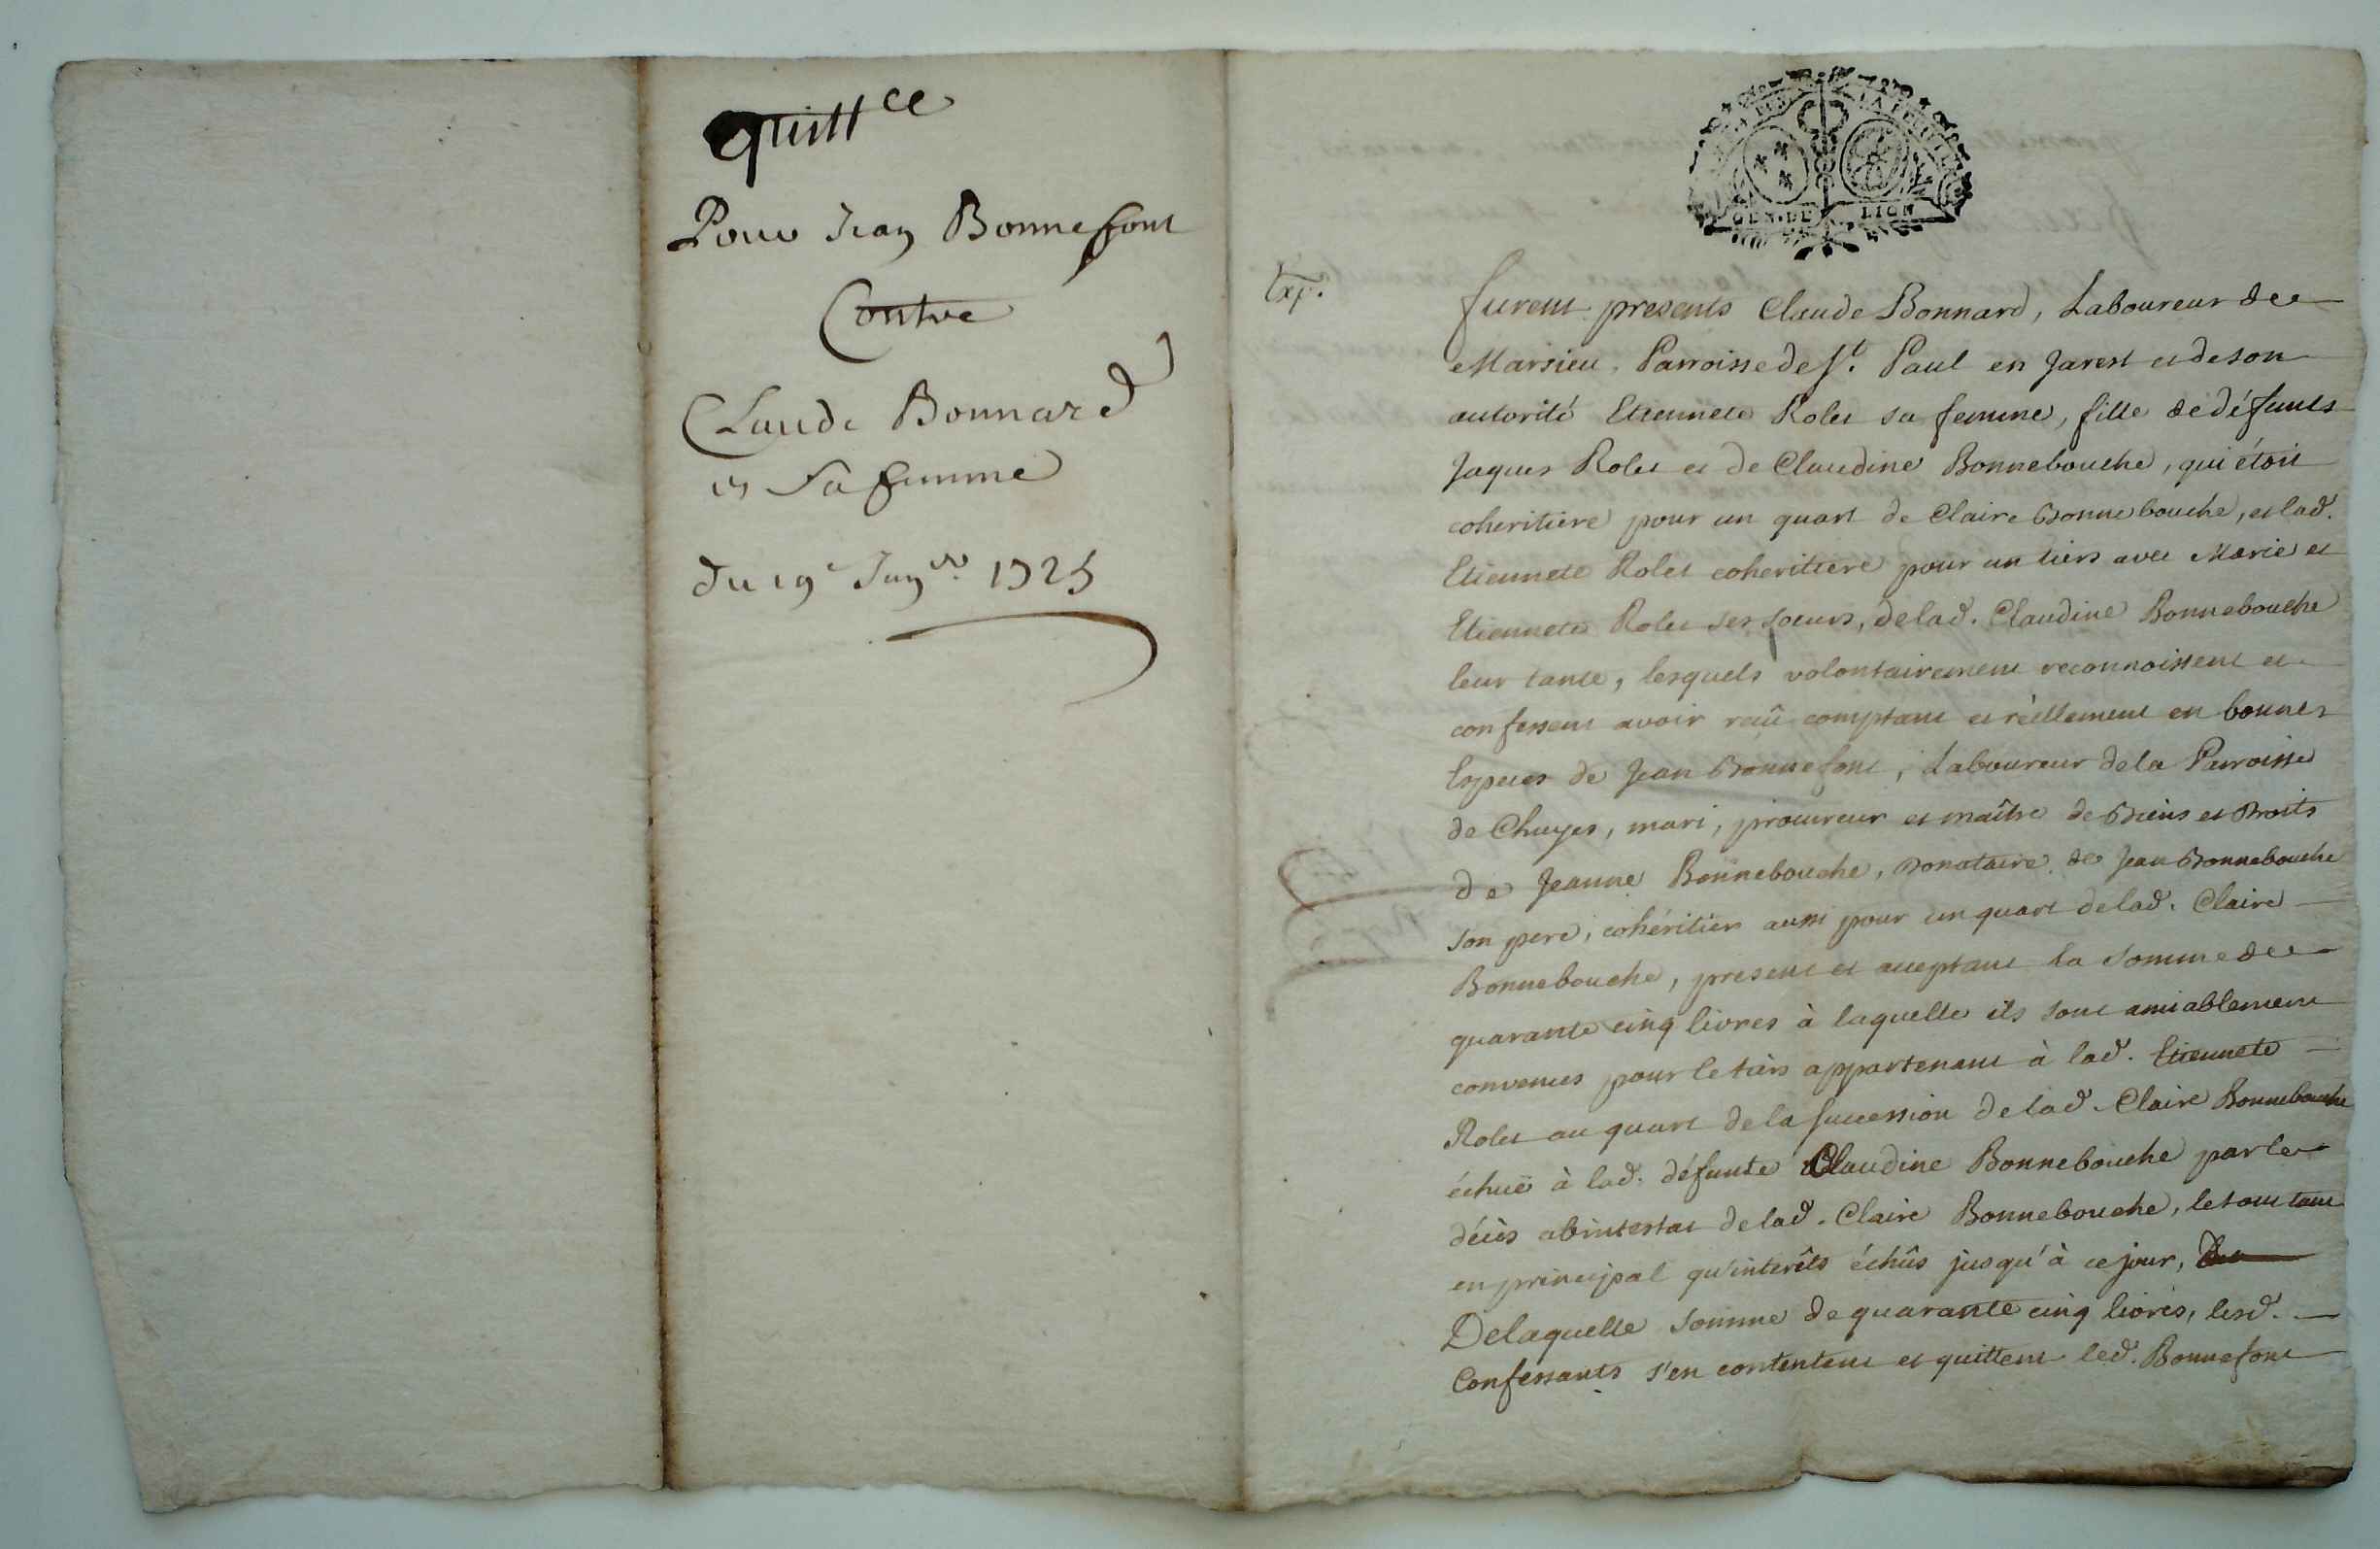 quittce
Pour Jean Bonnefont
Contre
Claude Bonnard
et Sa femme
du 19e Janvr. 1725
GEN. DE LION
Exp.
furent presents Claude Bonnard, Laboureur de
Marsieu, Parroisse de St. Paul en Jarest et de son
autorité Etiennete Rolet sa femme, fille de défunts
Jaques Rolet et de Claudine Bonnebouche, qui étoit
coheritiere pour un quart de Claire Bonnebouche, et lad.
Etiennete Rolet coheritiere pour un tiers avec Marie et
Etiennete Rolet ses soeurs, de lad. Claudine Bonnebouche
leur tante, lesquels volontairement reconnoissent et
confessent avoir reçû comptant et réellement en bonnes
Especes de Jean Bonnefont, Laboureur de la Parroisse
de Chuyes, mari, procureur et maître de Biens et Droits
de Jeanne Bonnebouche, Donataire de Jean Bonnebouche
son pere, cohéritier aussi pour un quart de lad. Claire
Bonnebouche, present et acceptant la somme de
quarante cinq livres à laquelle ils sont amiablement
convenus pour le tiers appartenant à lad. Etiennete
Rolet au quart de la succession de lad. Claire Bonnebouche
échuë à lad. défunte Claudine Bonnebouche par le
décès abintestat de lad. Claire Bonnebouche, le tout tant
en principal qu'interêts échûs jusqu'à ce jour,
De laquelle somme de quarante cinq livres, lesd.
Confessants s'en contentent et quittent led. Bonnefont